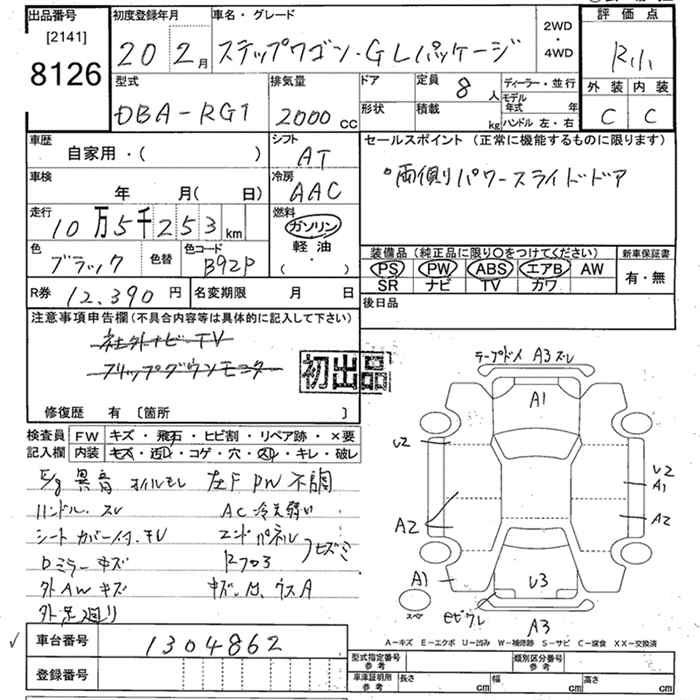 出品番号 初度登録年月 車名・グレード 2WD・4WD 評価点
[2141]
8126
20 2月 ステップワゴン・GLパッケージ
外装 内装
C C
型式 排気量 ドア 定員 8人 ディーラー・並行
DBA-RG1 2000cc 形状 積載 kg モデル年式 年
ハンドル 左・右
車歴 シフト セールスポイント (正常に機能するものに限ります)
自家用・( ) AT
°両側パワースライドドア
車検 冷房
年 月(日) AAC
走行 燃料
10万5千253km ガソリン
軽油
・( )
色 色替 色コード
ブラック B92P
装備品 (純正品に限り○をつけてください) 新車保証書
PS PW ABS エアB AW 有・無
SR ナビ TV カワ
R券 12,390円 名変期限 月 日
後日品
注意事項申告欄 (不具合内容等は具体的に記入して下さい)
社外ナビTV
フリップダウンモニター
初出品
修復歴 有 [箇所 ]
検査員 FW キズ・飛石・ヒビ割・リペア跡・×要
記入欄 内装 キズ・汚レ・コゲ・穴・スレ・キレ・破レ
E/g異音 オイルモレ 左F PW不調
ハンドルスレ AC冷え弱い
シートカバー付 エンドパネル
Dミラーキズ
外AWキズ
外足廻り
車台番号 1304862
登録番号
A3
A1
U2
U2
A1
A2
A2
A1
U3
スペア
A3
A-キズ E-エクボ U-凹み W-補修跡 S-サビ C-腐食 XX-交換済
型式指定番号 参考 類別区分番号 参考
車庫証明用 参考 長さ cm 幅 cm 高さ cm